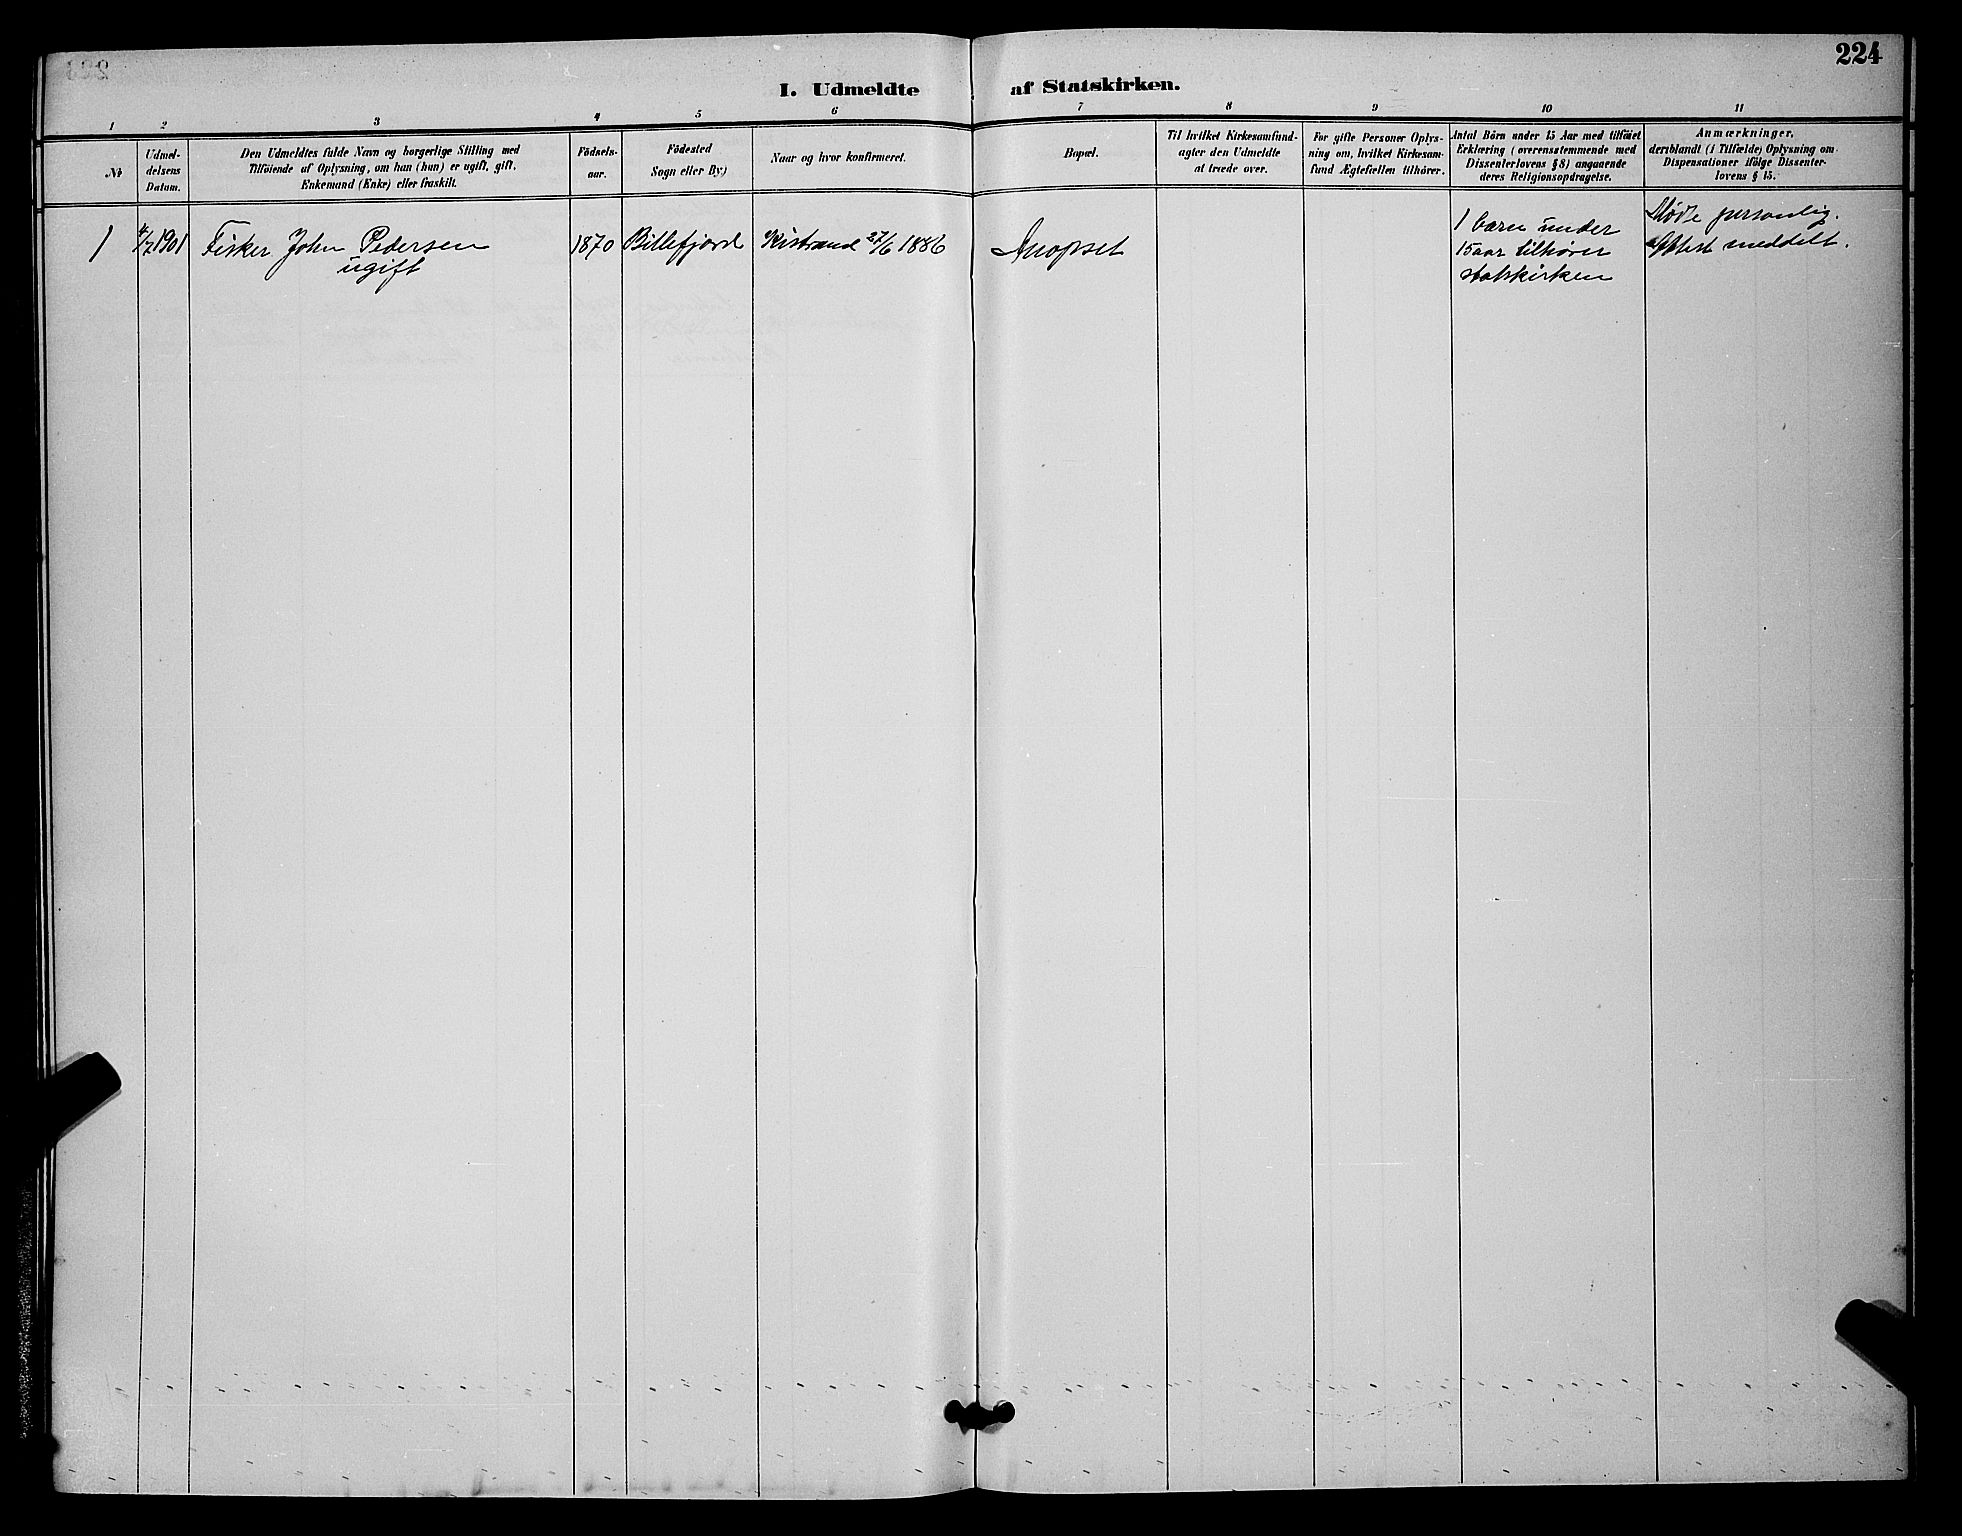 224
I. Udmeldte af Statskirken.
1 2 3 4 5 6 7 8 9 10 11
№
Udmel-
delsens
Datum.
Den Udmeldtes fulde Navn og borgerlige Stilling med
Tilföiende af Oplysning, om han (hun) er ugift, gift,
Enkemand (Enke) eller fraskilt.
Födsels-
aar.
Födested
Sogn eller By)
Naar og hvor konfirmeret.
Bopæl.
Til hvilket Kirkesamfund-
agter den Udmeldte
at træde over.
For gifte Personer Oplys-
ning om, hvilket Kirkesam-
fund Ægtefællen tilhörer.
Antal Börn under 15 Aar med tilföiet
Erklæring (overensstemmende med
Dissenterlovens § 8) angaaende
deres Religionsopdragelse.
Anmærkninger,
deriblandt (i Tilfælde) Oplysning om
Dispensationer ifölge Dissenter-
lovens § 15.
1
4/7 1901
Fisker John Pedersen
ugift
1870
Billefjord
Kistrand 27/6 1886
1 barn under
15 aar tilhører
statskirken
Mødte personlig.
Attest meddelt.